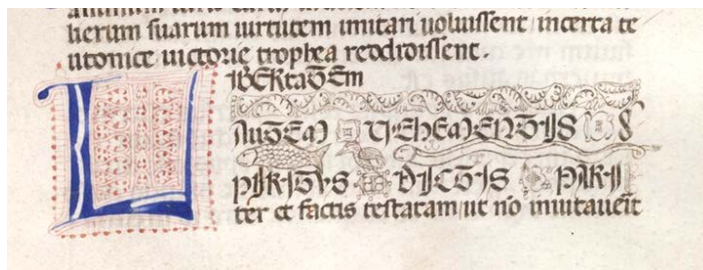 lierum suarum uirtutem imitari uoluissent incerta te
utonice uictorie trophea reddidissent.
LIBERTATEM
AUTEM UEHEMENTIS S
PIRITVS DICTIS PARI
ter et factis testatam ut nō inuitauerit